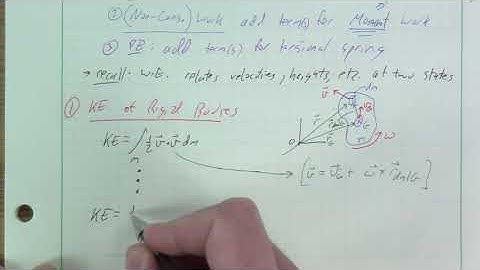 ② (Non-Cons.) Work add term(s) for Moment work
③ PE: add term(s) for torsional spring
→ recall: W.E. relates velocities, heights, etc. at two states
① KE of Rigid Bodies
KE = ∫ ½ v⃗ • v⃗ dm
m
[ v⃗ = v⃗_G + ω⃗ × r⃗_dm/G ]
KE =
dm
v⃗
r⃗
G
O
ω